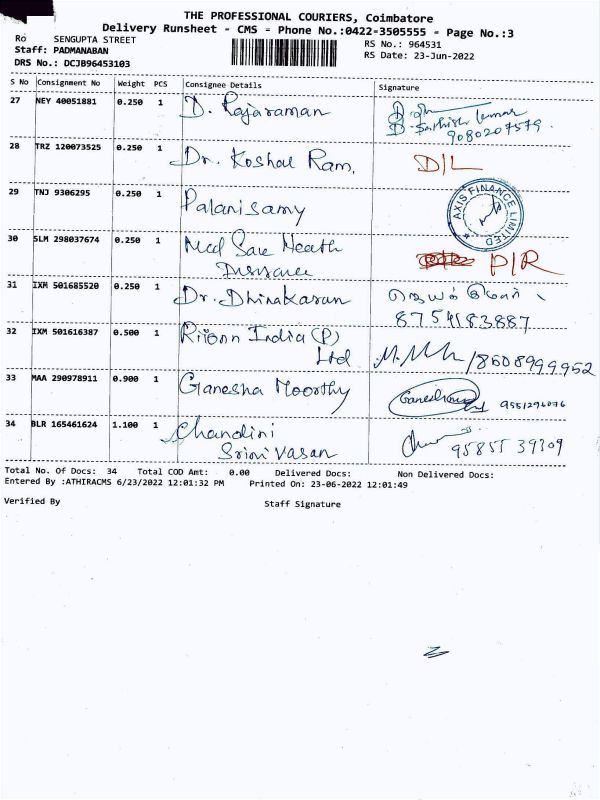 THE PROFESSIONAL COURIERS, Coimbatore
Delivery Runsheet - CMS - Phone No.:0422-3505555 - Page No.:3
Ro SENGUPTA STREET
RS No.: 964531
Staff: PADMANABAN
RS Date: 23-Jun-2022
DRS No.: DCJB96453103
S No Consignment No Weight PCS Consignee Details Signature
27 NEY 40051881 0.250 1 D. Rajaraman
D. Sathish Kumar
9080207579.
28 TRZ 120073525 0.250 1 Dr. Koshal Ram. D/L
29 TNJ 9306295 0.250 1 Palanisamy AXIS FINANCE LIMITED
30 SLM 298037674 0.250 1 Med Save Health
Insurance P/R
31 IXM 501685520 0.250 1 Dr. Dhinakaran
8754183887
32 IXM 501616387 0.500 1 India (P)
Ltd /8608999952
33 MAA 290978911 0.900 1 Ganesha Moorthy 9551294076
34 BLR 165461624 1.100 1 Chandini
Srinivasan 9585539309
Total No. Of Docs: 34 Total COD Amt: 0.00 Delivered Docs: Non Delivered Docs:
Entered By :ATHIRACMS 6/23/2022 12:01:32 PM Printed On: 23-06-2022 12:01:49
Verified By Staff Signature